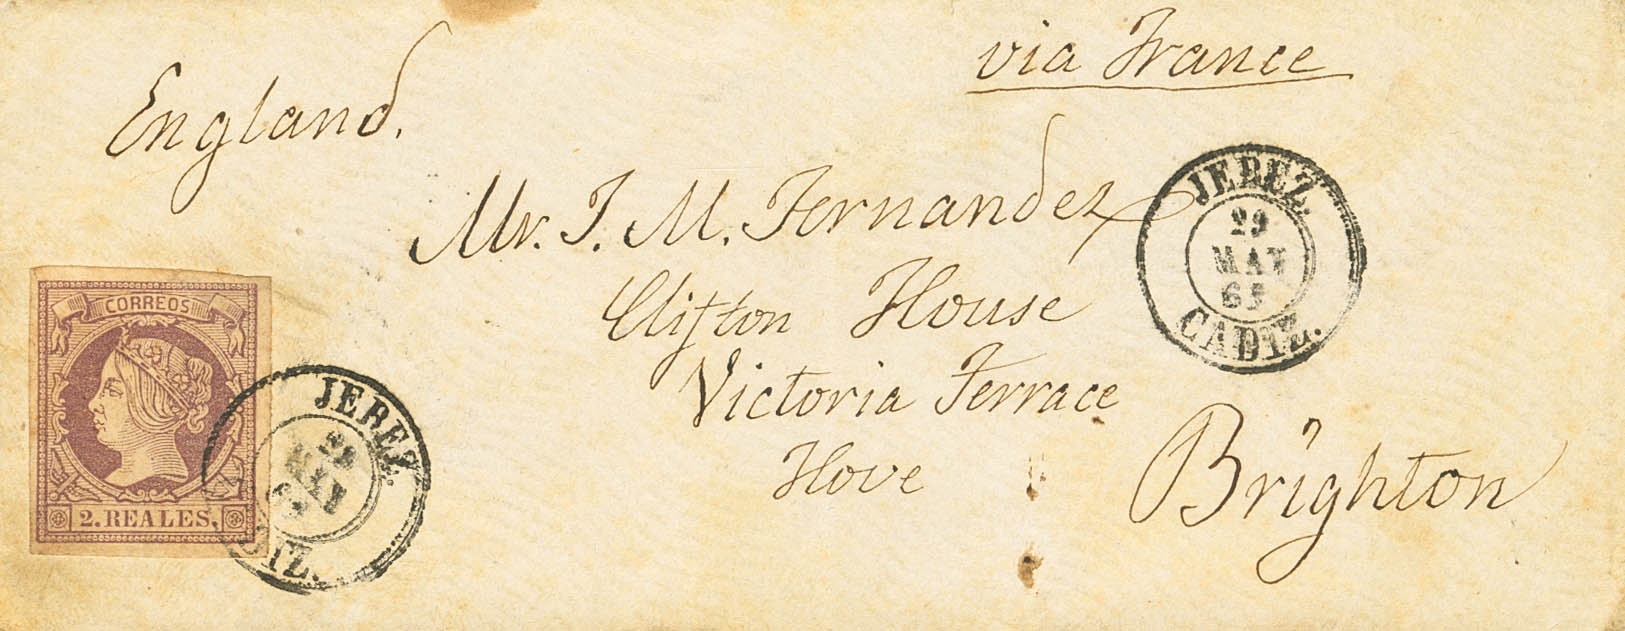 via France
England.
Mr. J. M. Fernandez
Clifton House
Victoria Terrace
Hove
Brighton
JEREZ.
29
MAY
CADIZ.
CORREOS
2. REALES.
JEREZ.
29
MAY
DIZ.